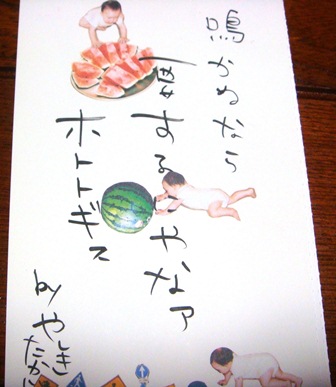 鳴かぬなら
する やなァ
ホトトギス
by やしき
たかじ